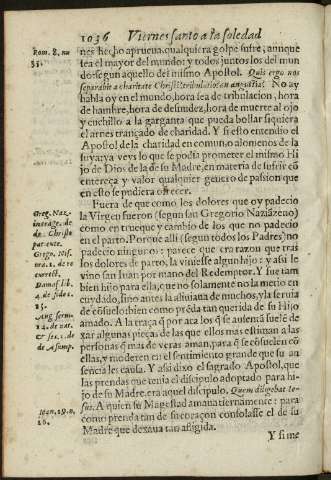 1036 Viernes santo a la soledad
Rom. 8. nu
35.
nes hecho aprueua, qualquiera golpe sufre, aunque
sea el mayor del mundo: y todos juntos los del mun
do: segun aquello del mismo Apostol. Quis ergo nos
separabit a charitate Christi? tribulatio? an angustia? No ay
habla oy en el mundo, hora sea de tribulacion, hora
de hambre, hora de desnudez, hora de muerte al ojo
y cuchillo a la garganta que pueda bollar siquiera
el arnes trançado de charidad. Y si esto entendio el
Apostol de la charidad en comun, o alomenos de la
suya: ya veys lo que se podia prometer el mismo Hi
jo de Dios de la de su Madre, en materia de sufrir cõ
entereça y valor qualquier genero de passion que
en esto se pudiera ofrecer.
Fuera de que como los dolores que oy padecio
la Virgen fueron (segun san Gregorio Nazianzeno)
como en trueque y cambio de los que no padecio
en el parto. Porque alli (segun todos los Padres) no
padecio ninguno: parece que era razon que tras
los dolores de parto, la viniesse algun hijo: y assi le
vino san Iuan por mano del Redemptor. Y fue tam
bien hijo para ella, que no solamente no la metio en
cuydado, sino antes la aliuiaua de muchos, y la seruia
de cõsuelo: bien como prẽda tan querida de su Hijo
amado. A la traça q̃ por aca los q̃ se ausentã suelẽ de
xar algunas pieças, de las que ellos mas estiman a las
personas q̃ mas de veras aman, para q̃ se cõsuelen cõ
ellas, y moderen en el sentimiento grande que su au
sencia les causa. Y assi dixo el sagrado Apostol, que
las prendas que tenia el discipulo adoptado para hi-
jo de su Madre, era aquel discipulo, Quem diligebat Ie-
sus. A quien su Magestad amaua tiernamente: para
como prenda tan de su coraçon consolasse el de su
Madre que dexaua tan afligida.
Y si me
Greg. Naz-
Christo
patiente.
Greg. Nis.
Damas. lib.
4. de fide c.
15.
Aug. serm.
14. de nat.
de Assump.
Ioan. 19. n.
26.